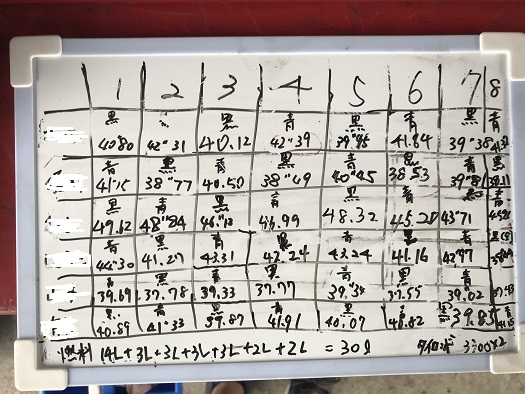 1 2 3 4 5 6 7 8
黒 青 黒 青 黒 青 黒 青
40"80 42"31 40.12 42"39 39"95 41.84 39"38
青 黒 青 黒 青 黒 青
41"15 38"77 40.50 38"49 40"45 38"53
黒 青 黒 青 黒 青 黒 青
49.12 48"84 46.99 48.32 45.20 43"71
青 黒 青 黒 青 黒 青 黒
41.27 43.31 42.24 43.24 41.16
青 黒 青 黒 青 黒 青
39.69 37.78 39.33 37.77 37.55 39.02
黒 青 黒 青 黒 青 青
40.89 41"33 39.87 41.91 40.07 39.85
燃料 14L+3L+3L+3L+3L+2L+2L =30ℓ